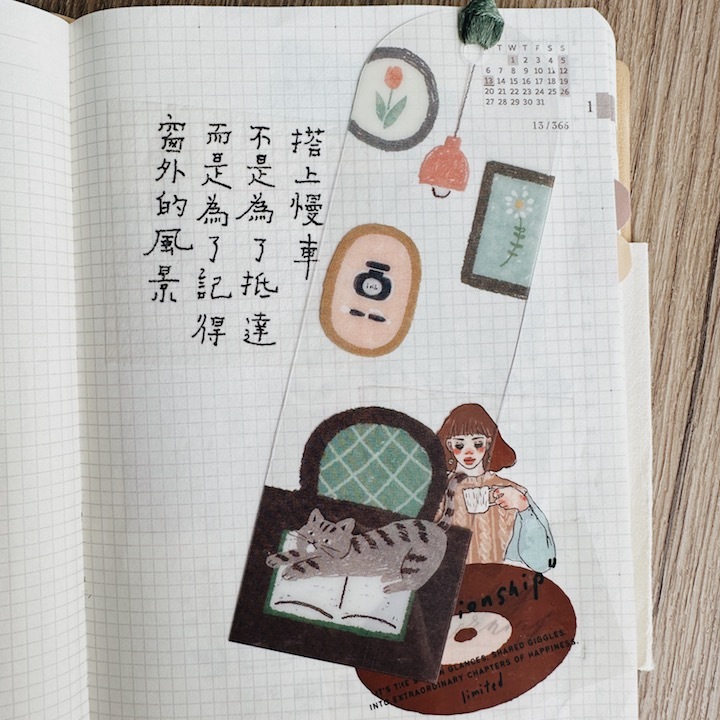 搭上慢車
不是為了抵達
而是為了記得
窗外的風景
T W T F S S
1 2 3 4 5
6 7 8 9 10 11 12
13 14 15 16 17 18 19
20 21 22 23 24 25 26
27 28 29 30 31
1
13/365
ink
ionship"
THE GLANCES, SHARED GIGGLES
INTO EXTRAORDINARY CHAPTERS OF HAPPINESS.
limited